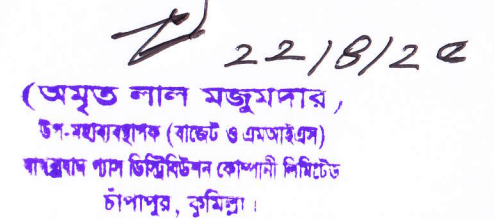 22/8/2৫
(অমৃত লাল মজুমদার)
উপ-মহাব্যবস্থাপক (বাজেট ও এমআইএস)
বাখরাবাদ গ্যাস ডিস্ট্রিবিউশন কোম্পানী লিমিটেড
চাঁপাপুর, কুমিল্লা।